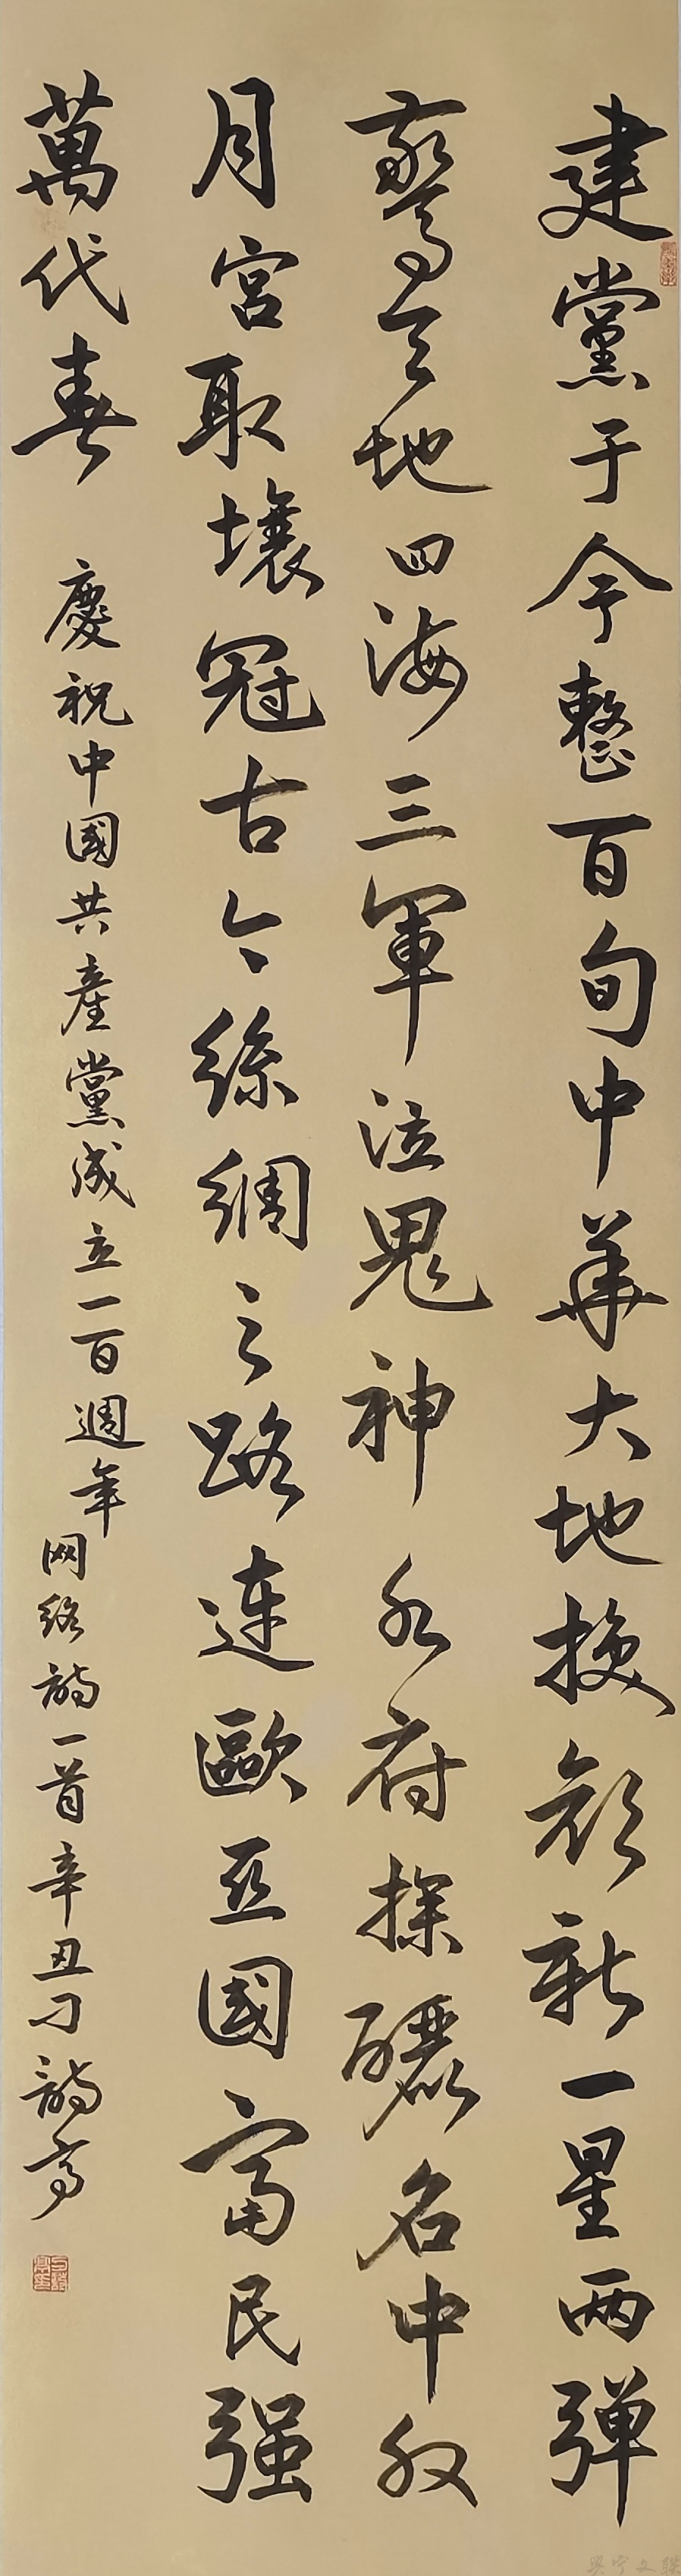 建黨于今整百旬中華大地换顔新一星两弹
驚天地四海三軍泣鬼神水府探驪名中外
月宮取壤冠古今絲綢之路連歐亞國富民强
萬代春 慶祝中國共産黨成立一百週年网络詩一首辛丑刁詩